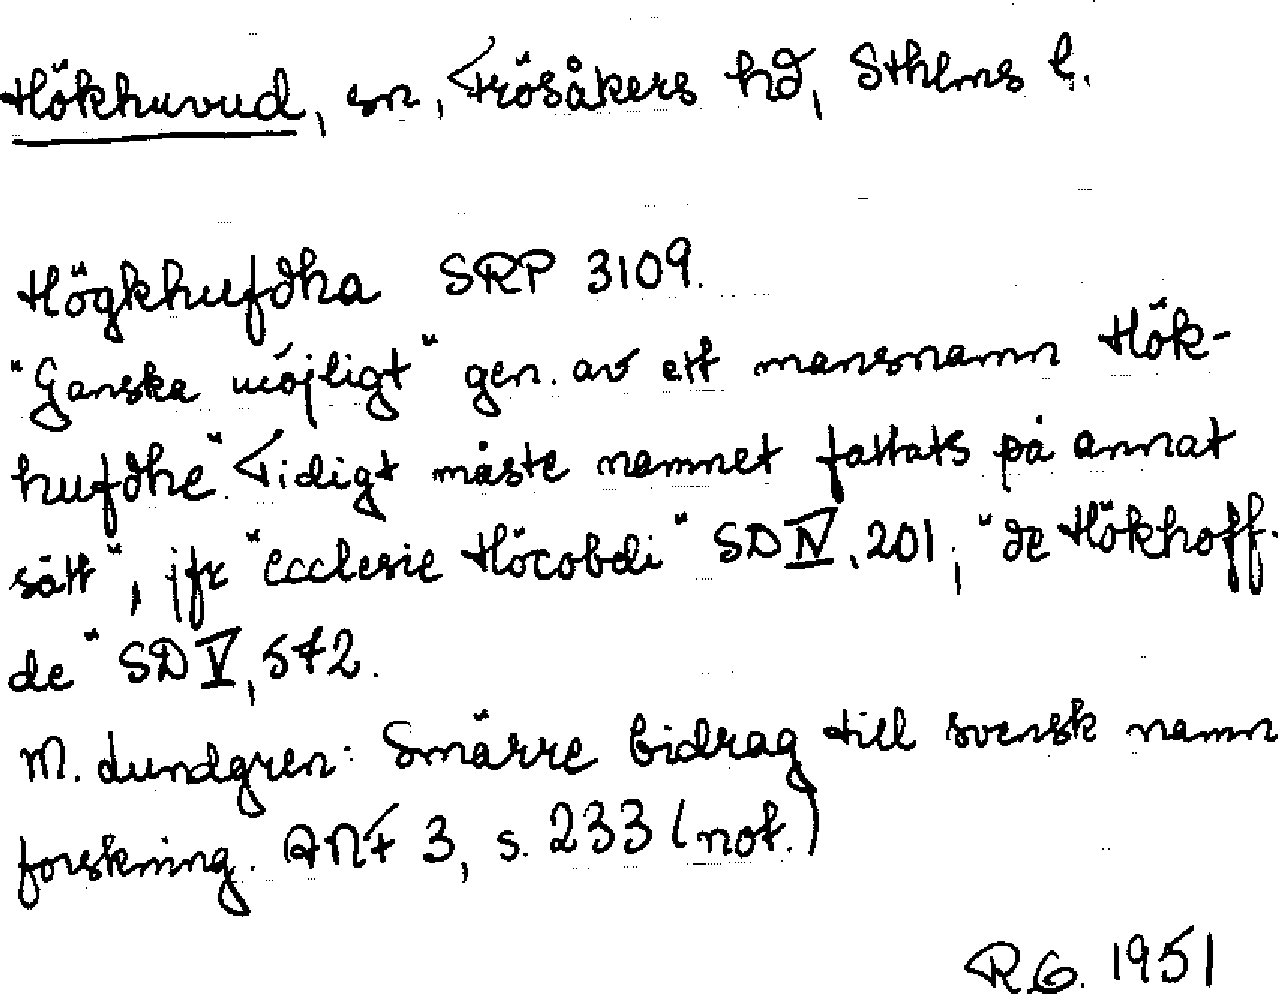 Hökhuvud, sn, Frösåkers hd, Sthlms l.
Högkhufdha SRP 3109.
"Ganska möjligt" gen. av ett mansnamn Hök-
hufdhe". Tidigt måste namnet fattats på annat
sätt", jfr "ecclesie Höcobdi" SD IV, 201, "de Hökhoff-
de" SD V, 572.
M. Lundgren: Smärre bidrag till svensk namn
forskning. ANF 3, s. 233 (not.)
R.G. 1951